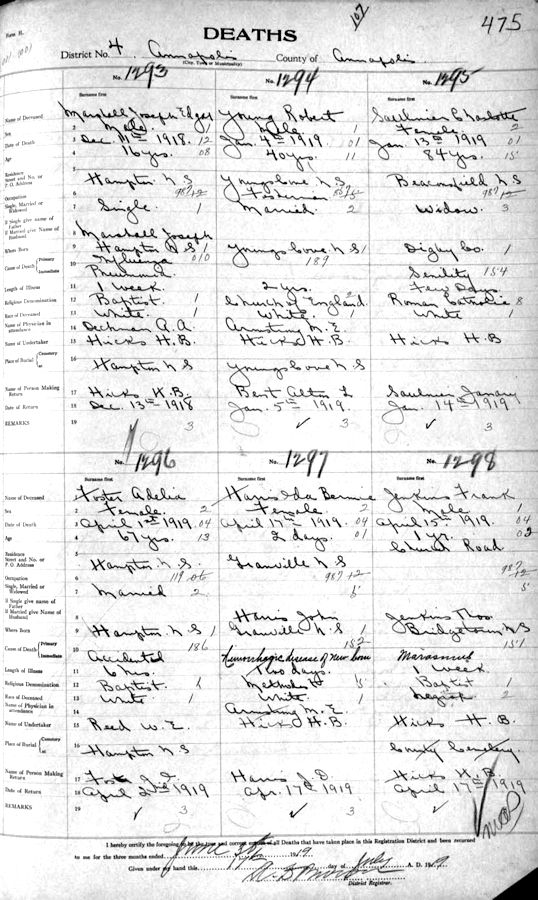 Form H.
DEATHS
107
475
District No. 4 Annapolis County of Annapolis
(City, Town or Municipality)
No. 1293 No. 1294 No. 1295
Surname first Surname first Surname first
Name of Deceased 1 Marshall Joseph Edgar Young Robert Saulnier Charlotte
Sex 2 Male 1 Male 1 Female 2
Date of Death 3 Dec. 11th 1918. 12 Jan. 4th 1919 01 Jan. 13th 1919 01
Age 4 16 yrs. 08 40 yrs. 11 84 yrs. 15
Residence Street and No. or P. O. Address 5 Hampton N S Youngs Cove N.S. Beaconsfield N S
Occupation 6 987 12 Fisherman 987 12
Single, Married or Widowed 7 Single 1 Married 2 Widow 3
If Single give name of Father If Married give Name of Husband 8 Marshall Joseph
Where Born 9 Hampton N S 1 Youngs Cove N S 1 Digby Co. 1
Cause of Death Primary Immediate 10 Influenza Pneumonia 010 189 Senility 154
Length of Illness 11 1 week 2 yrs. Few Days
Religious Denomination 12 Baptist 1 Church of England Roman Catholic 8
Race of Deceased 13 White 1 White 1 White 1
Name of Physician in attendance 14 Dechman A. A. Armstrong M. E.
Name of Undertaker 15 Hicks H. B. Hicks H. B. Hicks H. B
Place of Burial Cemetery at 16 Hampton N S Youngs Cove N.S.
Name of Person Making Return 17 Hicks H. B. Bent Alton L Saulnier
Date of Return 18 Dec. 13th 1918 Jan. 5th 1919. Jan. 14th 1919
REMARKS 19 3 ✓ 3 ✓ 3
No. 1296 No. 1297 No. 1298
Surname first Surname first Surname first
Name of Deceased 1 Foster Adelia Harris Ida Bernice Jenkins Frank
Sex 2 Female 2 Female 2 Male 1
Date of Death 3 April 1st 1919. 04 April 17th 1919. 04 April 15th 1919. 04
Age 4 67 yrs. 13 2 days. 01 1 yr. 02
Residence Street and No. or P. O. Address 5 Hampton N.S. Granville N S Church Road
Occupation 6 987 12 987 12
Single, Married or Widowed 7 Married 2 5 5
If Single give name of Father If Married give Name of Husband 8 Harris John Jenkins Thos
Where Born 9 Hampton N S 1 Granville N. S. 1 Bridgetown N S
Cause of Death Primary Immediate 10 Accidental 186 Hemorrhagic disease of New born 152 Marasmus 151
Length of Illness 11 6 hrs. Two days. 1 week
Religious Denomination 12 Baptist 1 Methodist 5 Baptist 1
Race of Deceased 13 White 1 White 1 2
Name of Physician in attendance 14 Armstrong M. E.
Name of Undertaker 15 Reed W. E. Hicks H. B. Hicks H. B.
Place of Burial Cemetery at 16 Hampton N S County Cemetery.
Name of Person Making Return 17 Harris J. D. Hicks H. B.
Date of Return 18 April 2nd 1919 Apr. 17th 1919 April 17th 1919
REMARKS 19 ✓ 3 ✓ 3
I hereby certify the foregoing to be the true and correct of all Deaths that have taken place in this Registration District and been returned
to me for the three months ended June 30th 1919
Given under my hand this 17th day of July A. D. 1919
District Registrar.